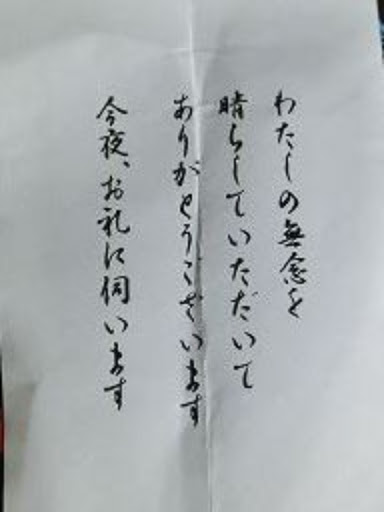 わたしの無念を
晴らしていただいて
ありがとうございます
今夜、お礼に伺います